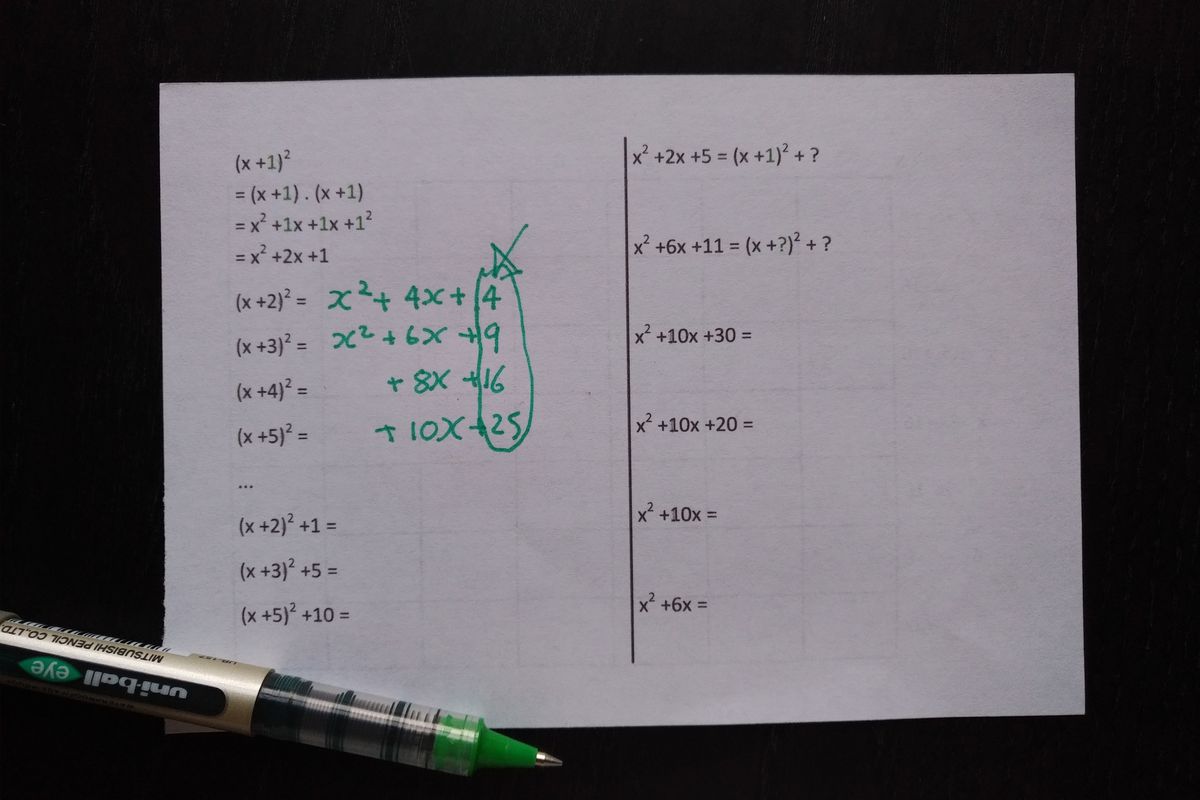 (x +1)²
= (x +1) . (x +1)
= x² +1x +1x +1²
= x² +2x +1
(x +2)² = x² + 4x + 4
(x +3)² = x² + 6x + 9
(x +4)² = + 8x + 16
(x +5)² = + 10x + 25
...
(x +2)² +1 =
(x +3)² +5 =
(x +5)² +10 =
x² +2x +5 = (x +1)² + ?
x² +6x +11 = (x +?)² + ?
x² +10x +30 =
x² +10x +20 =
x² +10x =
x² +6x =
MITSUBISHI PENCIL CO. LTD
uni-ball
eye